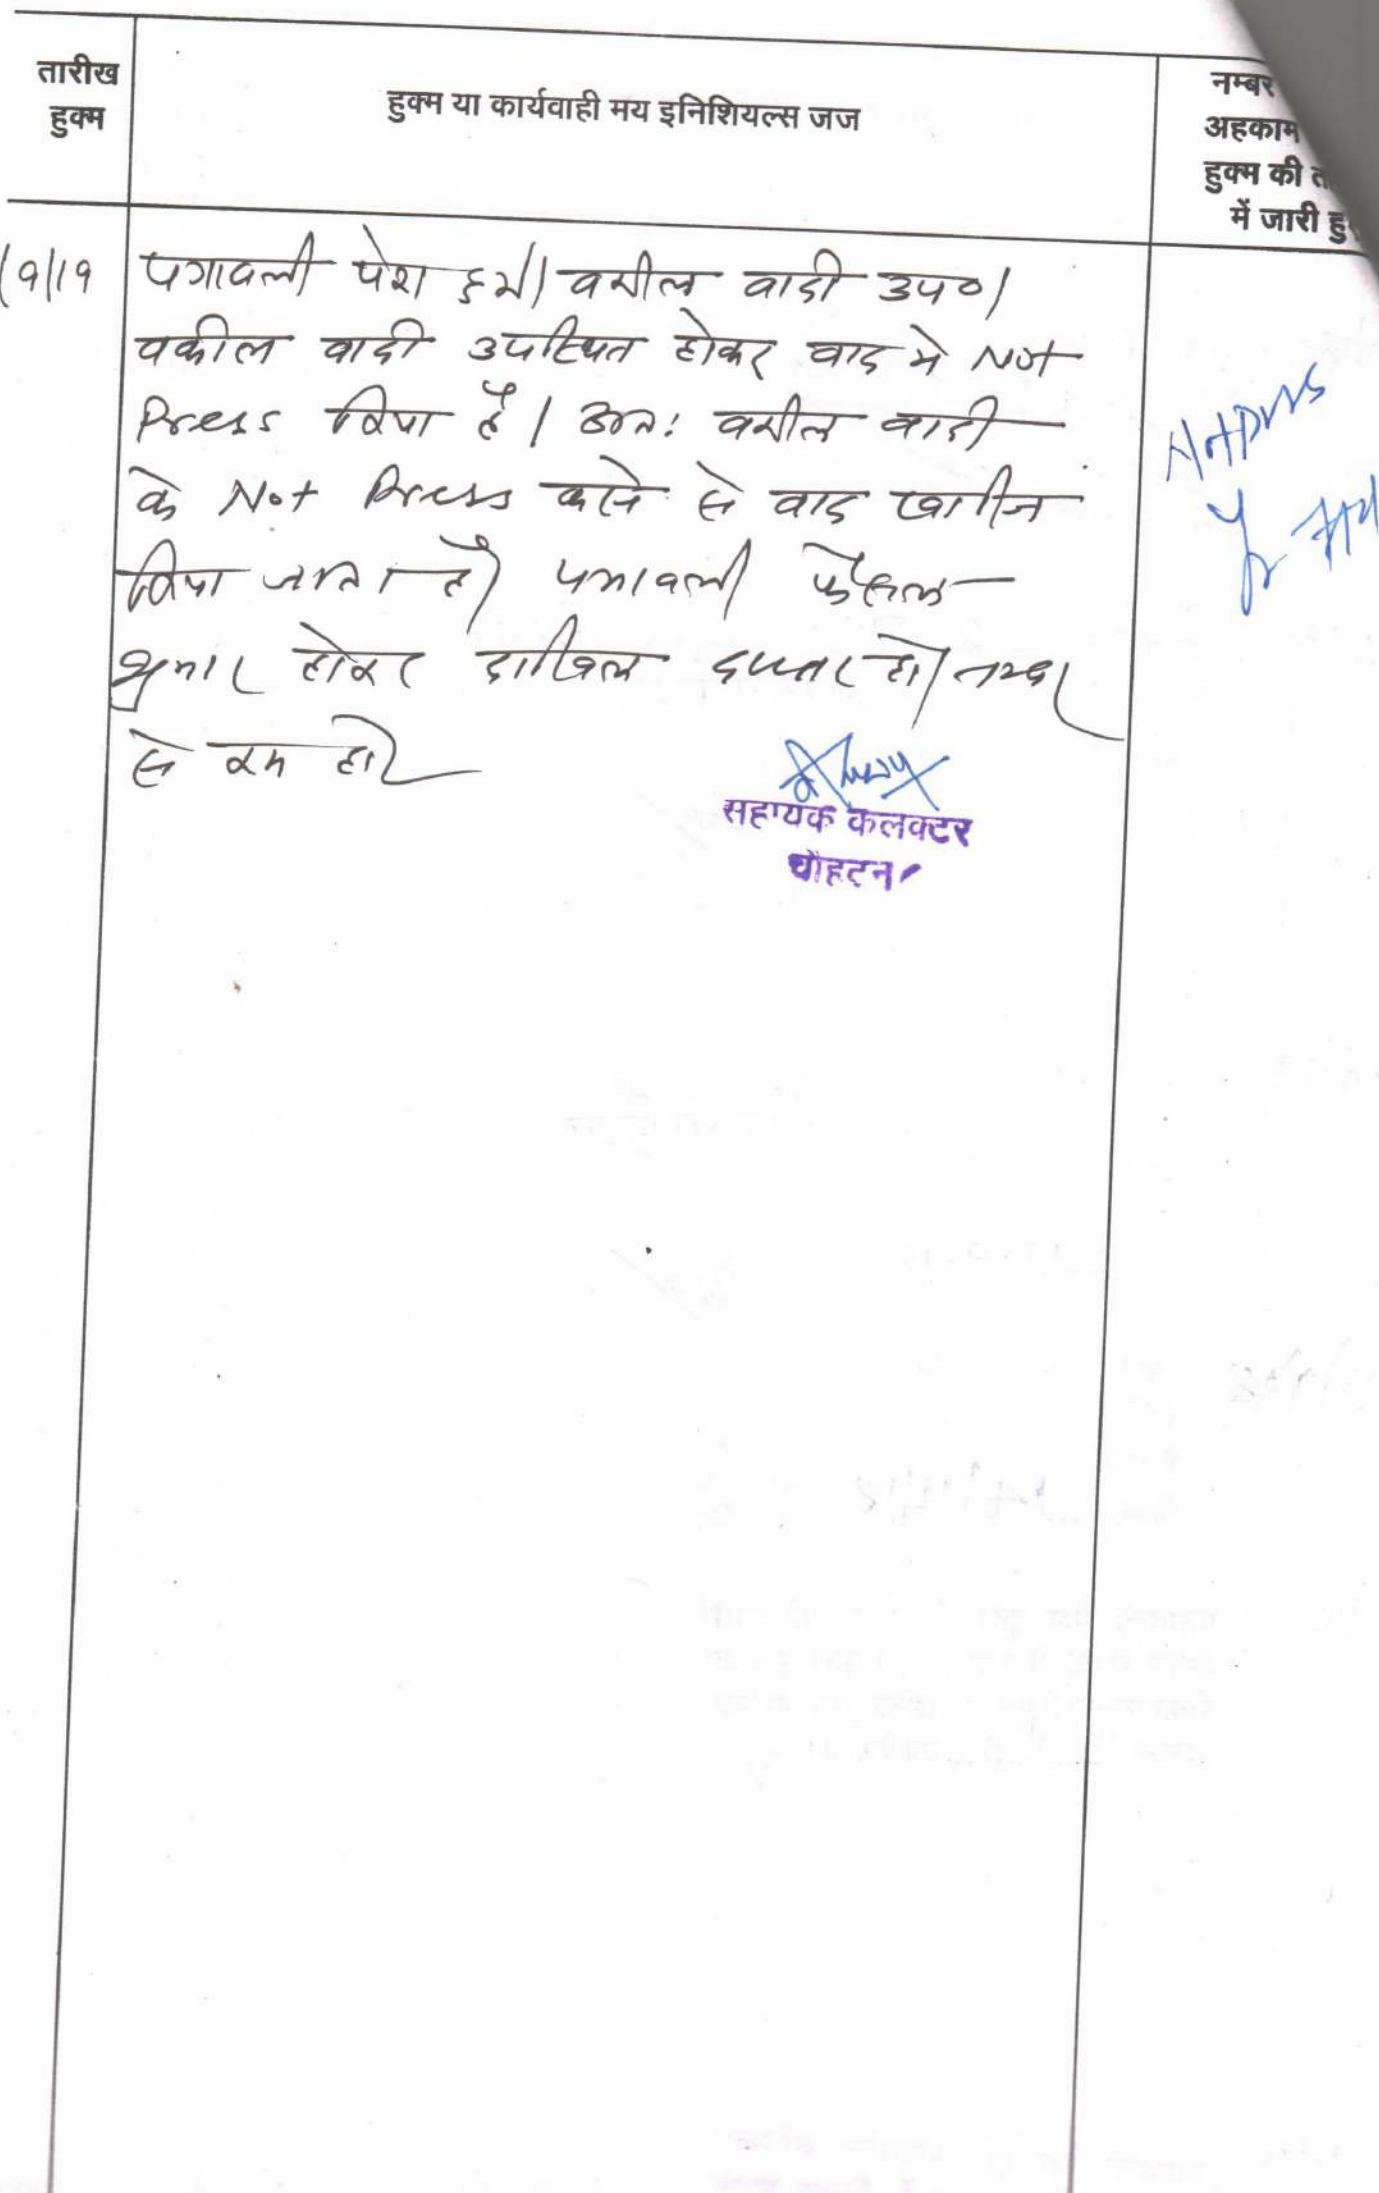 तारीख
हुक्म
हुक्म या कार्यवाही मय इनिशियल्स जज
नम्बर
अहकाम
हुक्म की
में जारी
/9/19 पत्रावली पेश हुई। वकील वादी उप०।
वकील वादी उपस्थित होकर वाद मे Not
Press किया है। अतः वकील वादी
के Not Press करने से वाद खारीज
किया जाता है। पत्रावली फैसल
शुमार होकर दाखिल दफ्तर हो। नम्बर
से कम हो
Not press
सहायक कलक्टर
चौहटन